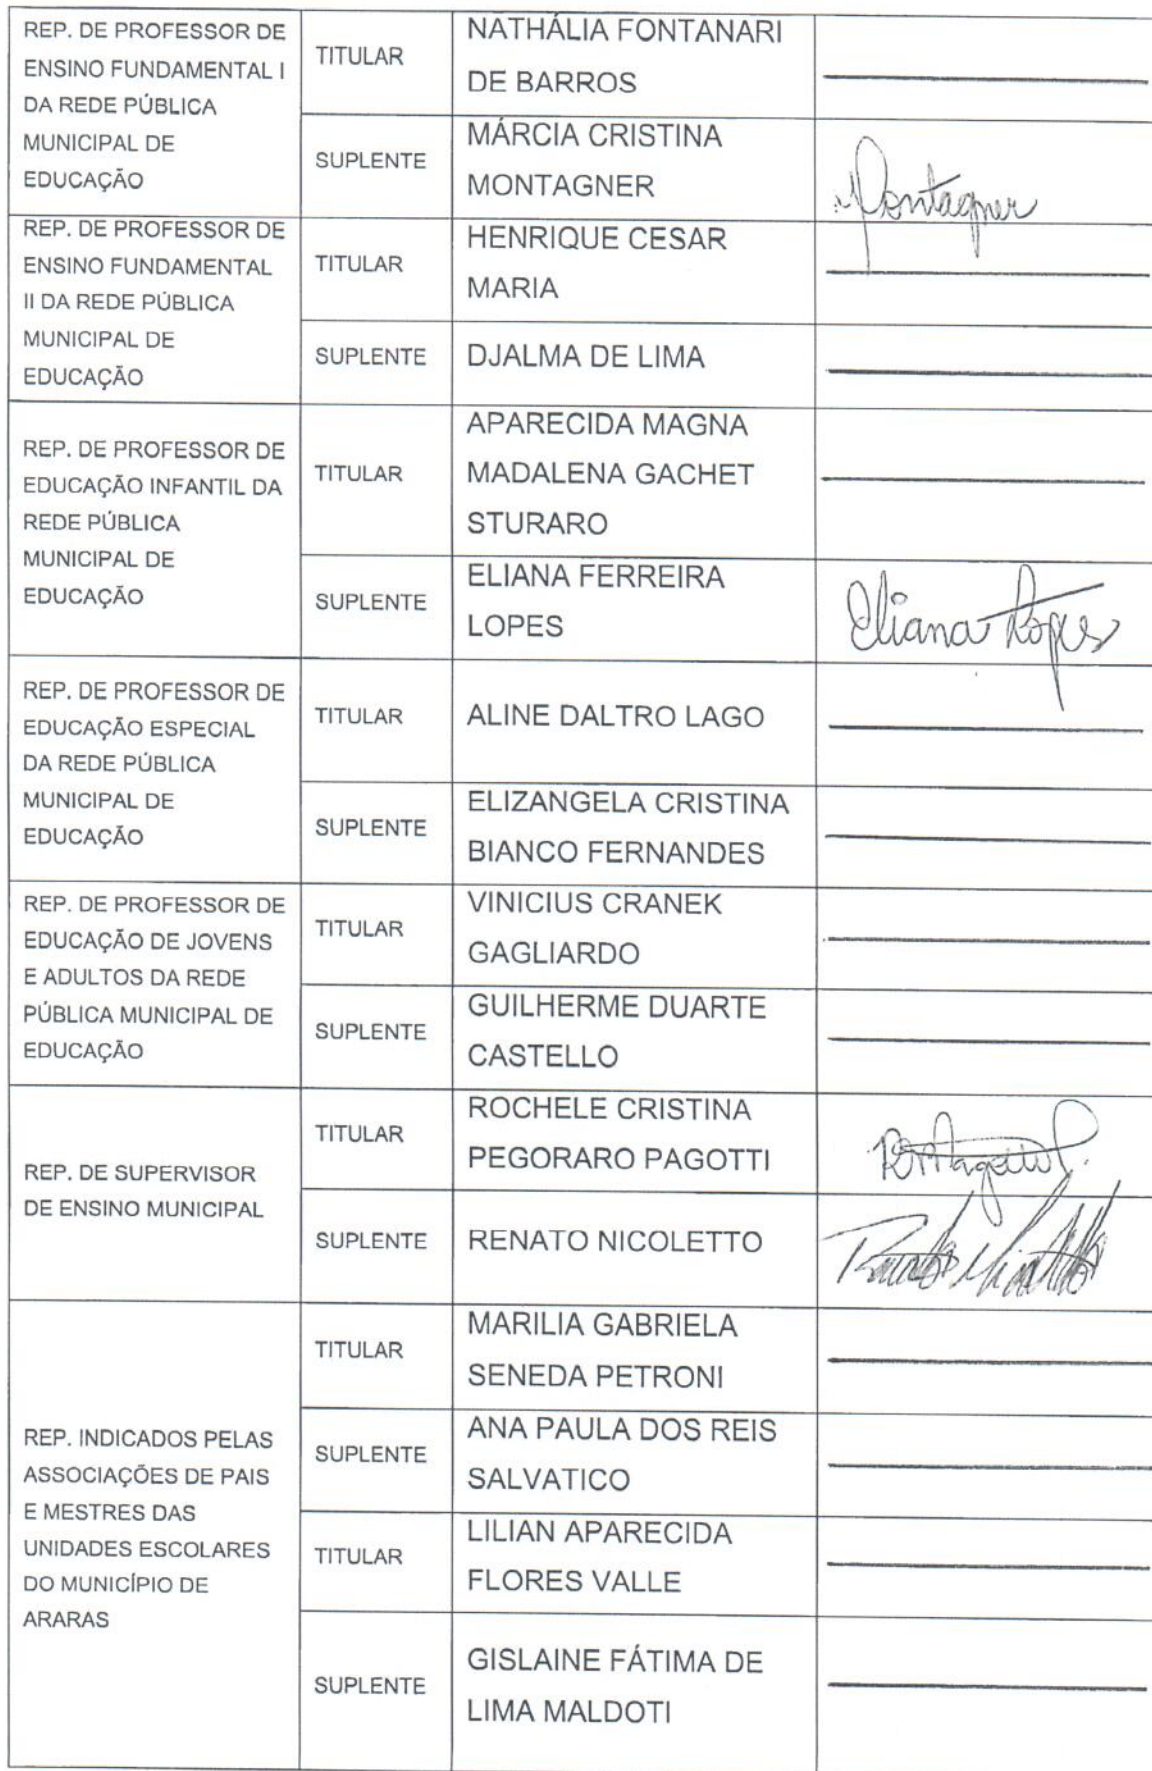 REP. DE PROFESSOR DE
ENSINO FUNDAMENTAL I
DA REDE PÚBLICA
MUNICIPAL DE
EDUCAÇÃO
TITULAR
NATHÁLIA FONTANARI
DE BARROS
SUPLENTE
MÁRCIA CRISTINA
MONTAGNER
Montagner
REP. DE PROFESSOR DE
ENSINO FUNDAMENTAL
II DA REDE PÚBLICA
MUNICIPAL DE
EDUCAÇÃO
TITULAR
HENRIQUE CESAR
MARIA
SUPLENTE
DJALMA DE LIMA
REP. DE PROFESSOR DE
EDUCAÇÃO INFANTIL DA
REDE PÚBLICA
MUNICIPAL DE
EDUCAÇÃO
TITULAR
APARECIDA MAGNA
MADALENA GACHET
STURARO
SUPLENTE
ELIANA FERREIRA
LOPES
Eliana Lopes
REP. DE PROFESSOR DE
EDUCAÇÃO ESPECIAL
DA REDE PÚBLICA
MUNICIPAL DE
EDUCAÇÃO
TITULAR
ALINE DALTRO LAGO
SUPLENTE
ELIZANGELA CRISTINA
BIANCO FERNANDES
REP. DE PROFESSOR DE
EDUCAÇÃO DE JOVENS
E ADULTOS DA REDE
PÚBLICA MUNICIPAL DE
EDUCAÇÃO
TITULAR
VINICIUS CRANEK
GAGLIARDO
SUPLENTE
GUILHERME DUARTE
CASTELLO
REP. DE SUPERVISOR
DE ENSINO MUNICIPAL
TITULAR
ROCHELE CRISTINA
PEGORARO PAGOTTI
SUPLENTE
RENATO NICOLETTO
REP. INDICADOS PELAS
ASSOCIAÇÕES DE PAIS
E MESTRES DAS
UNIDADES ESCOLARES
DO MUNICÍPIO DE
ARARAS
TITULAR
MARILIA GABRIELA
SENEDA PETRONI
SUPLENTE
ANA PAULA DOS REIS
SALVATICO
TITULAR
LILIAN APARECIDA
FLORES VALLE
SUPLENTE
GISLAINE FÁTIMA DE
LIMA MALDOTI